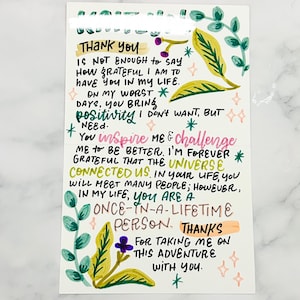 THANK YOU
IS NOT ENOUGH TO SAY
HOW GRATEFUL I AM TO
HAVE YOU IN MY LIFE.
ON MY WORST
DAYS, YOU BRING
positivity I DON'T WANT, BUT
NEED.
YOU inspire ME & challenge
ME TO BE BETTER, I'M FOREVER
GRATEFUL THAT THE UNIVERSE
CONNECTED US. IN YOUR LIFE, YOU
WILL MEET MANY PEOPLE; HOWEVER,
IN MY LIFE, YOU ARE A
ONCE-IN-A-LIFETIME
PERSON. THANKS
FOR TAKING ME ON
THIS ADVENTURE
WITH YOU.